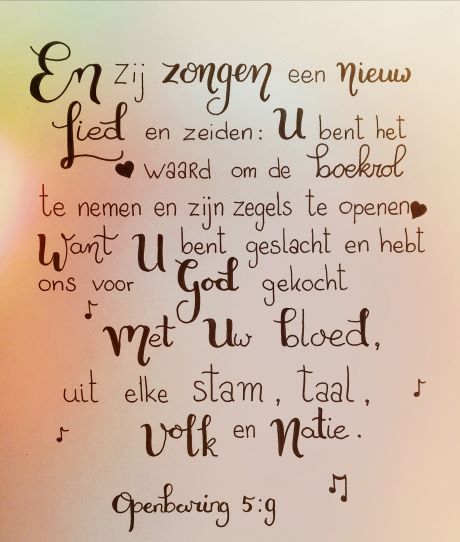 En zij zongen een nieuw
Lied en zeiden: U bent het
waard om de boekrol
te nemen en zijn zegels te openen
Want U bent geslacht en hebt
ons voor God gekocht
Met Uw bloed,
uit elke stam, taal,
Volk en Natie.
Openbaring 5:9